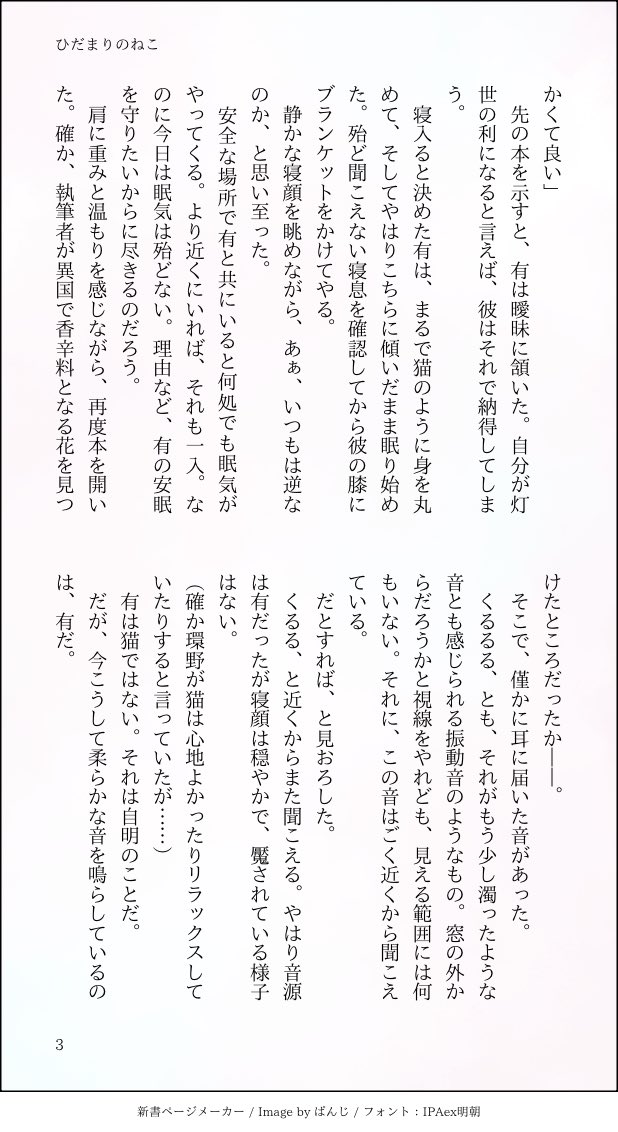 ひだまりのねこ
かくて良い」
　先の本を示すと、有は曖昧に頷いた。自分が灯
世の利になると言えば、彼はそれで納得してしま
う。
　寝入ると決めた有は、まるで猫のように身を丸
めて、そしてやはりこちらに傾いだまま眠り始め
た。殆ど聞こえない寝息を確認してから彼の膝に
ブランケットをかけてやる。
　静かな寝顔を眺めながら、あぁ、いつもは逆な
のか、と思い至った。
　安全な場所で有と共にいると何処でも眠気が
やってくる。より近くにいれば、それも一入。な
のに今日は眠気は殆どない。理由など、有の安眠
を守りたいからに尽きるのだろう。
　肩に重みと温もりを感じながら、再度本を開い
た。確か、執筆者が異国で香辛料となる花を見つ
けたところだったか――。
　そこで、僅かに耳に届いた音があった。
　くるるる、とも、それがもう少し濁ったような
音とも感じられる振動音のようなもの。窓の外か
らだろうかと視線をやれども、見える範囲には何
もいない。それに、この音はごく近くから聞こえ
ている。
　だとすれば、と見おろした。
　くるる、と近くからまた聞こえる。やはり音源
は有だったが寝顔は穏やかで、魘されている様子
はない。
（確か環野が猫は心地よかったりリラックスして
いたりすると言っていたが……）
　有は猫ではない。それは自明のことだ。
　だが、今こうして柔らかな音を鳴らしているの
は、有だ。
3
新書ページメーカー / Image by ぱんじ / フォント：IPAex明朝